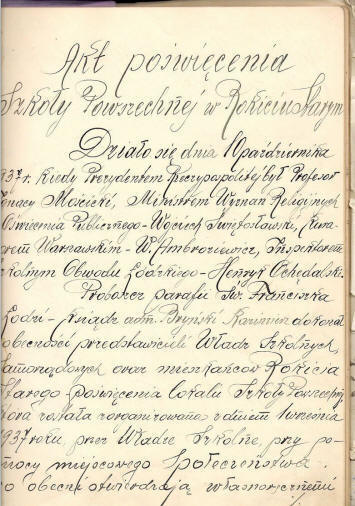 Akt poświęcenia
Szkoły Powszechnej w Rokiciu Starym
Działo się dnia 10 października
1937 r. kiedy Prezydentem Rzeczypospolitej był Profesor
Ignacy Mościcki, Ministrem Wyznań Religijnych
Oświecenia Publicznego - Wojciech Świętosławski, Kura-
torem Warszawskim - W. Ambroziewicz, Inspektorem
zkolnym Obwodu Łódzkiego - Henryk Ochędalski.
Proboszcz parafii Św. Franciszka
Łodzi - ksiądz adm. Kazimierz dokonał
obecności przedstawicieli Władz Szkolnych,
samorządowych oraz mieszkańców Rokicia
Starego poświęcenia lokalu Szkoły Powszechnej
która została zorganizowana z dniem 1 września
1937 roku przez Władze Szkolne, przy po-
mocy miejscowego społeczeństwa.
co obecni stwierdzają własnoręcznemi